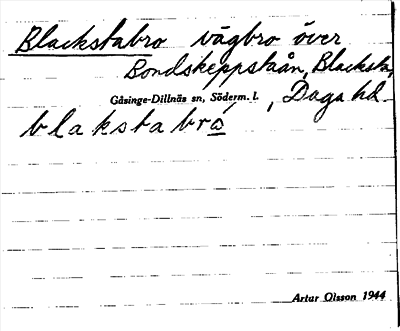 Blackstabro vägbro över
Bondskeppstaån, Blacksta,
Gåsinge-Dillnäs sn, Söderm. l. , Daga hd
blakstabro
Artur Olsson 1944